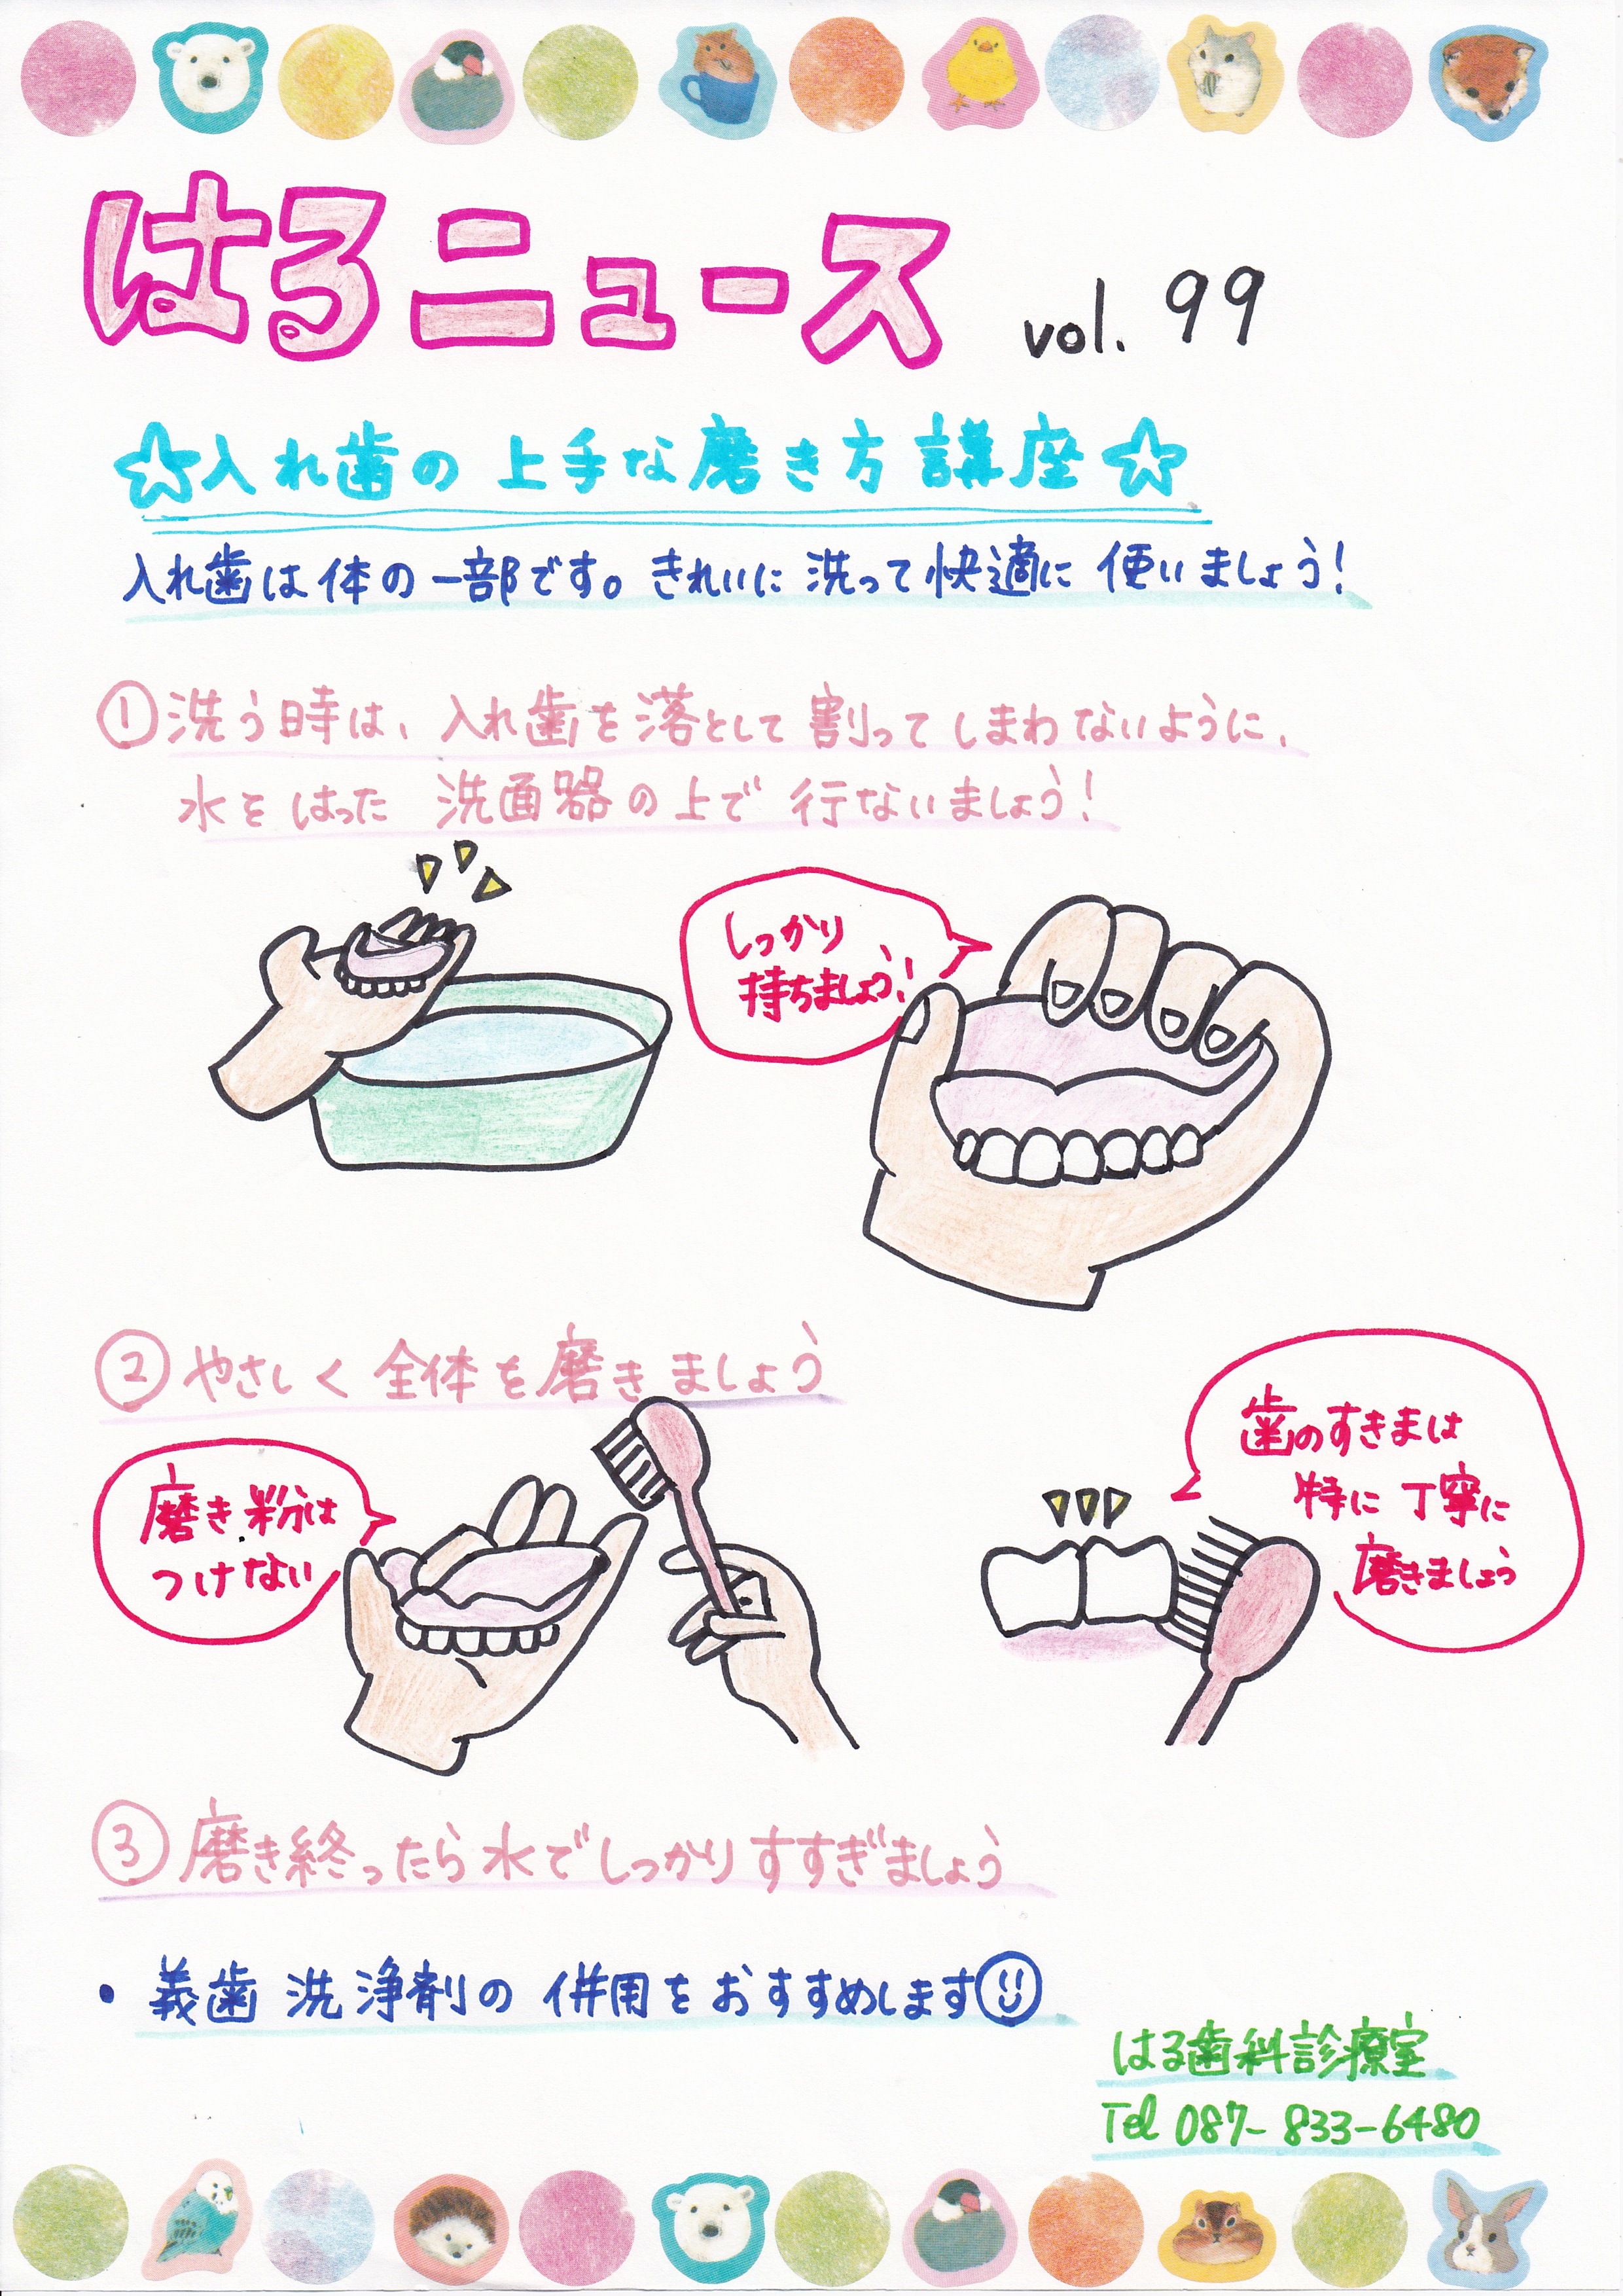 はるニュース vol. 99
☆入れ歯の上手な磨き方講座☆
入れ歯は体の一部です。きれいに洗って快適に使いましょう!
①洗う時は、入れ歯を落として割ってしまわないように、
水をはった洗面器の上で行ないましょう!
しっかり
持ちましょう!
②やさしく全体を磨きましょう
磨き粉は
つけない
歯のすきまは
特に丁寧に
磨きましょう
③磨き終ったら水でしっかりすすぎましょう
・義歯洗浄剤の併用をおすすめします
はる歯科診療室
Tel 087-833-6480